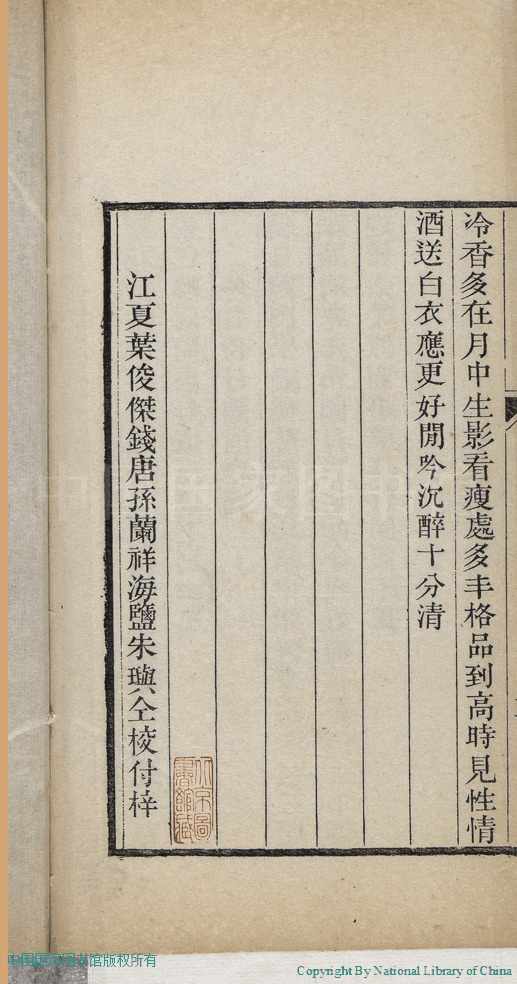 冷香多在月中生影看瘦處多丰格品到高時見性情
酒送白衣應更好閒吟沉醉十分清
江夏葉俊傑錢唐孫蘭祥海鹽朱璵仝校付梓
北京圖
書館藏
中国国家图书馆版权所有
Copyright By National Library of China